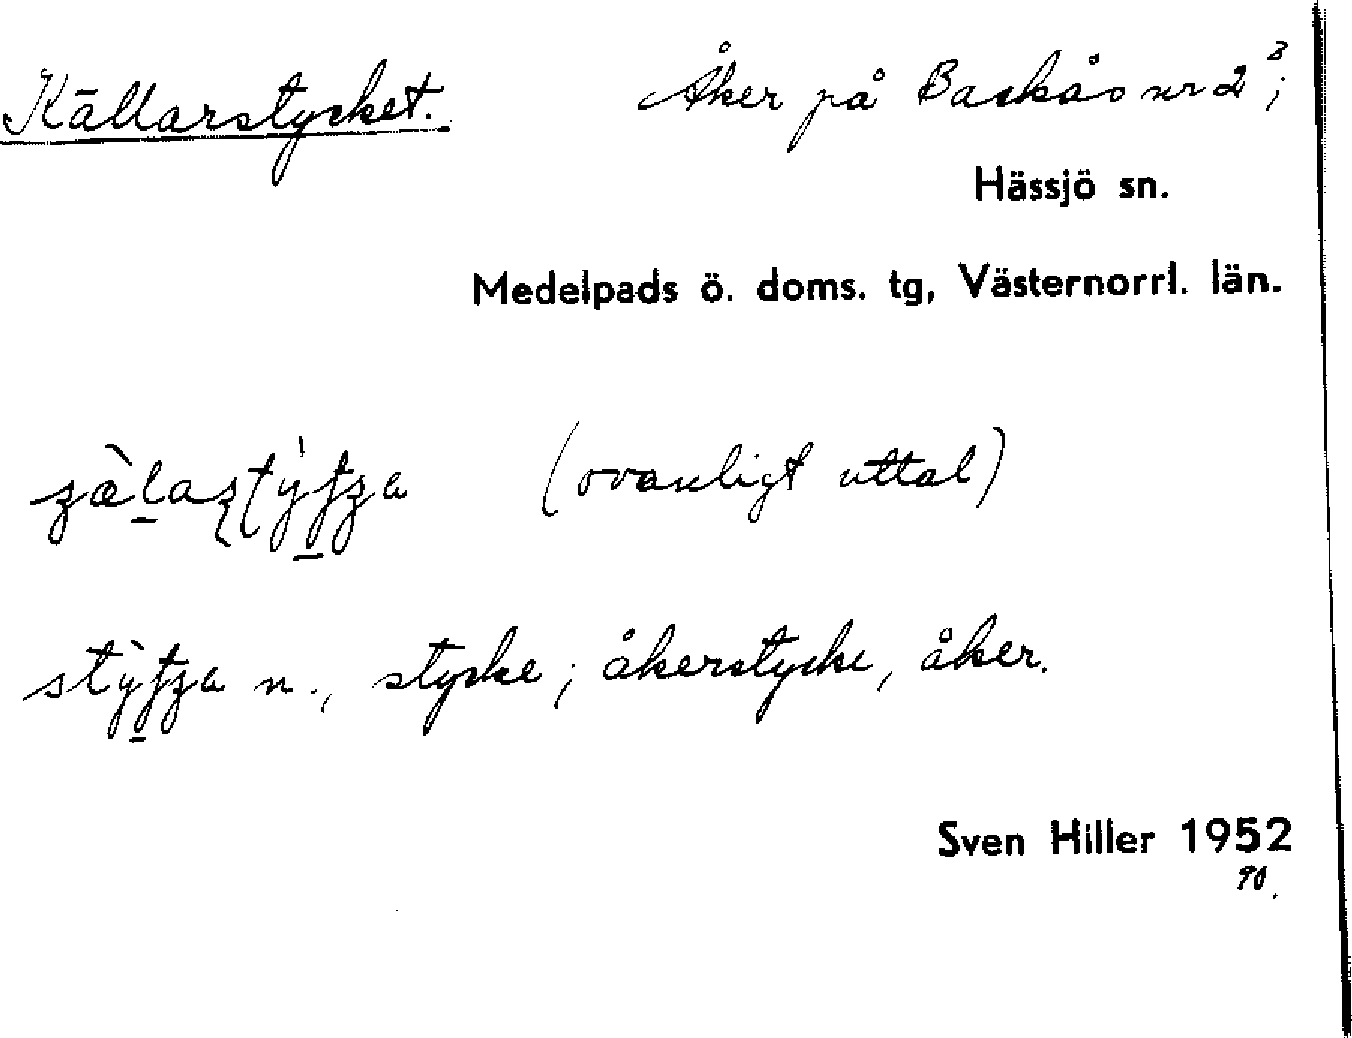 Källarstycket. Åker på Backås nr 2³;
Hässjö sn.
Medelpads ö. doms. tg, Västernorrl. län.
(ovanligt uttal)
n., stycke; åkerstycke, åker.
Sven Hiller 1952